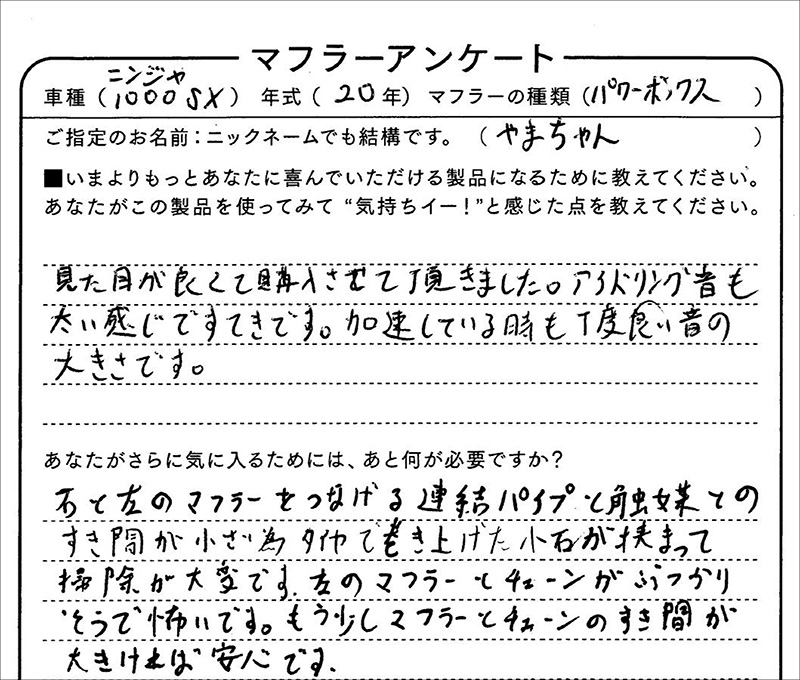 マフラーアンケート
車種（ニンジャ1000SX）年式（20年）マフラーの種類（パワーボックス）
ご指定のお名前：ニックネームでも結構です。（やまちゃん）
■いまよりもっとあなたに喜んでいただける製品になるために教えてください。
あなたがこの製品を使ってみて“気持ちイー！”と感じた点を教えてください。
見た目が良くて購入させて頂きました。アイドリング音も
太い感じですてきです。加速している時も丁度良い音の
大きさです。
あなたがさらに気に入るためには、あと何が必要ですか？
右と左のマフラーをつなげる連結パイプと触媒との
すき間が小さい為タイヤで巻き上げた小石が挟まって
掃除が大変です。左のマフラーとチェーンがぶつかり
そうで怖いです。もう少しマフラーとチェーンのすき間が
大きければ安心です.